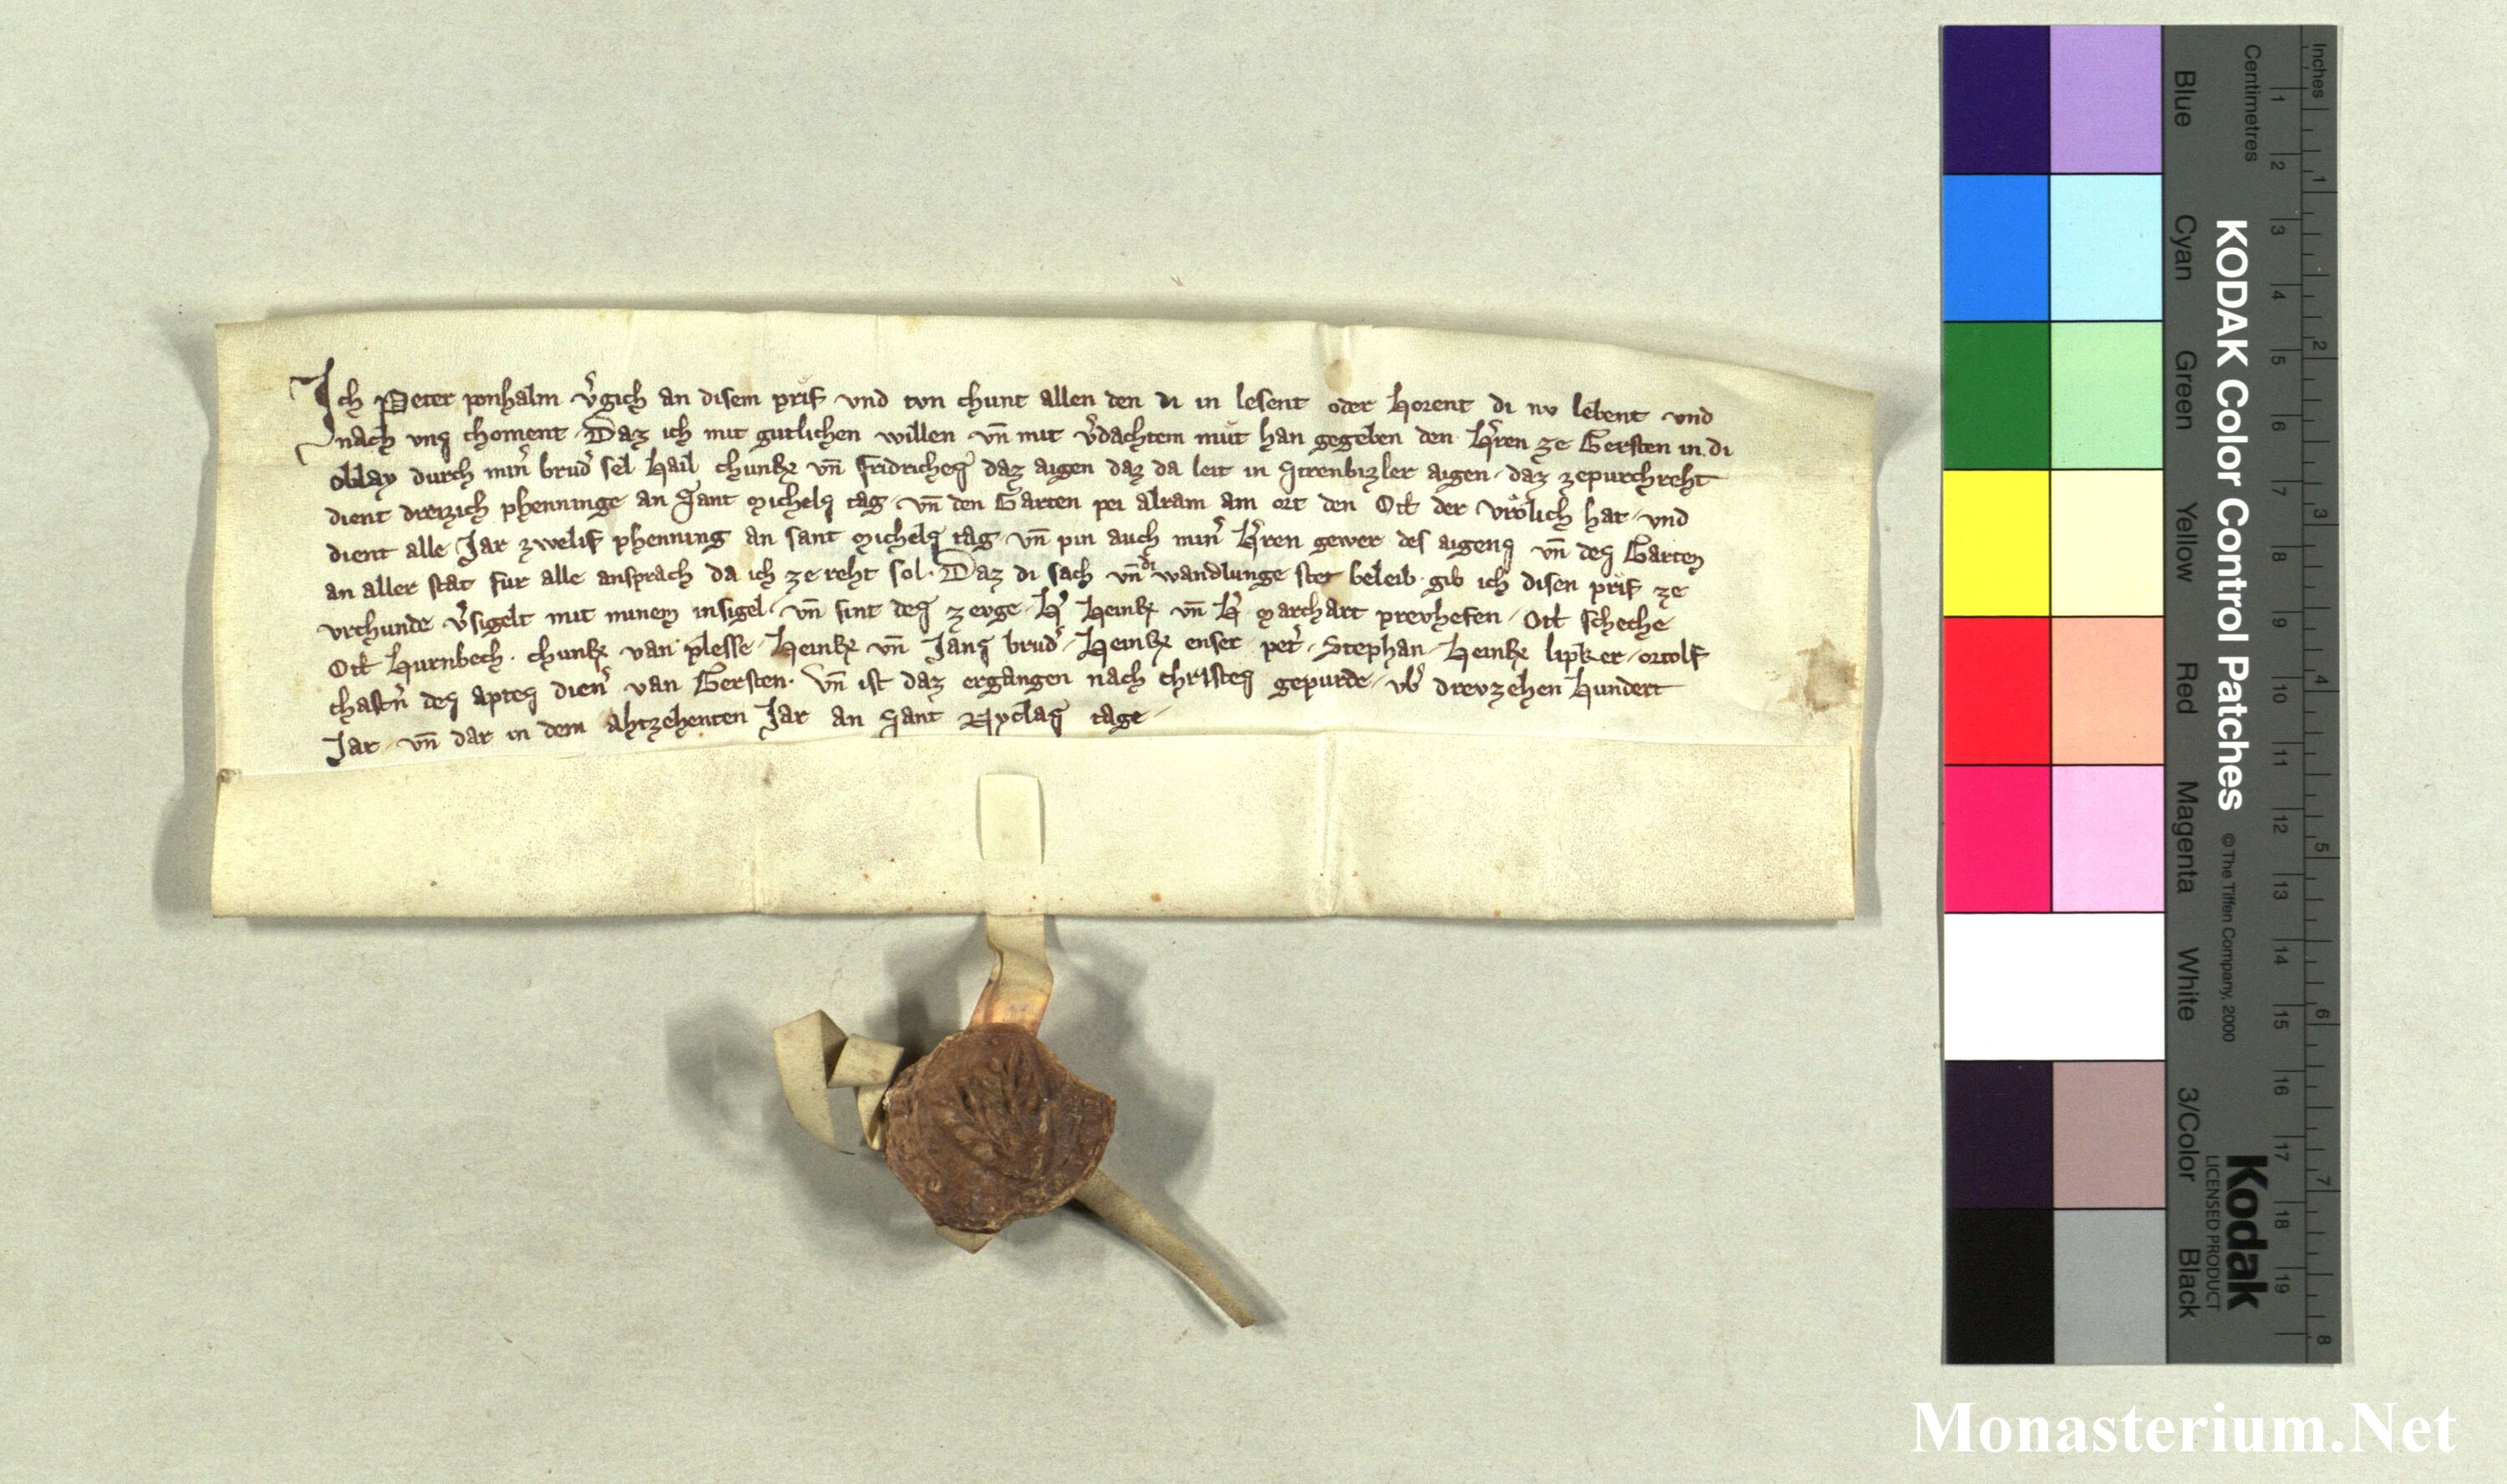 Ich Peter ponhalm v̉gich an disem prif vnd tvn chunt allen den di in lesent oder horent di nv lebent vnd
nach vns choment Daz ich mit gutlichen willen vn̄ mit v̉dachtem můt han gegeben den H̉ren ze Gersten in di
oblay durch min̉ brud̉ sel hail chunƷ vn̄ fridriches daz aigen daz da leit in strenbizler aigen daz zepurchreht
dient dreizich phenninge an Sant Michels tag vn̄ den Garten pei alram am ort den Ott der vrölich hat vnd
dient alle Jar zwelif phenning an sant Michels tag vn̄ pin auch min̉ H̉ren gewer des aigens vn̄ des Garten
an aller stat fur alle ansprach da ich ze reht sol. Daz di sach vn̄ di wandlunge stet beleib gib ich disen prif ze
vrchunde v̉sigelt mit minem insigel vn̄ sint des zevge H̉ Heinr vn̄ H̉ Marchart prevhefen Ott scheche
Ott Hurnbech chunr van plesse Heinr vn̄ Jans brud̉ Heinr enser pet̉ Stephan Heinr lipker ortolf
chastn̉ des aptes dien̉ van Gersten. Vn̄ ist daz ergangen nach christes gepurde vb̉ drevzehen Hundert
Jar vn̄ dar in dem ahtzehenten Jar an Sant Nyclas tage
KODAK Color Control Patches
© The Tiffen Company, 2000
Kodak
LICENSED PRODUCT
Blue Cyan Green Yellow Red Magenta White 3/Color Black
Centimetres
1 2 3 4 5 6 7 8 9 10 11 12 13 14 15 16 17 18 19
Inches
1 2 3 4 5 6 7 8
Monasterium.Net